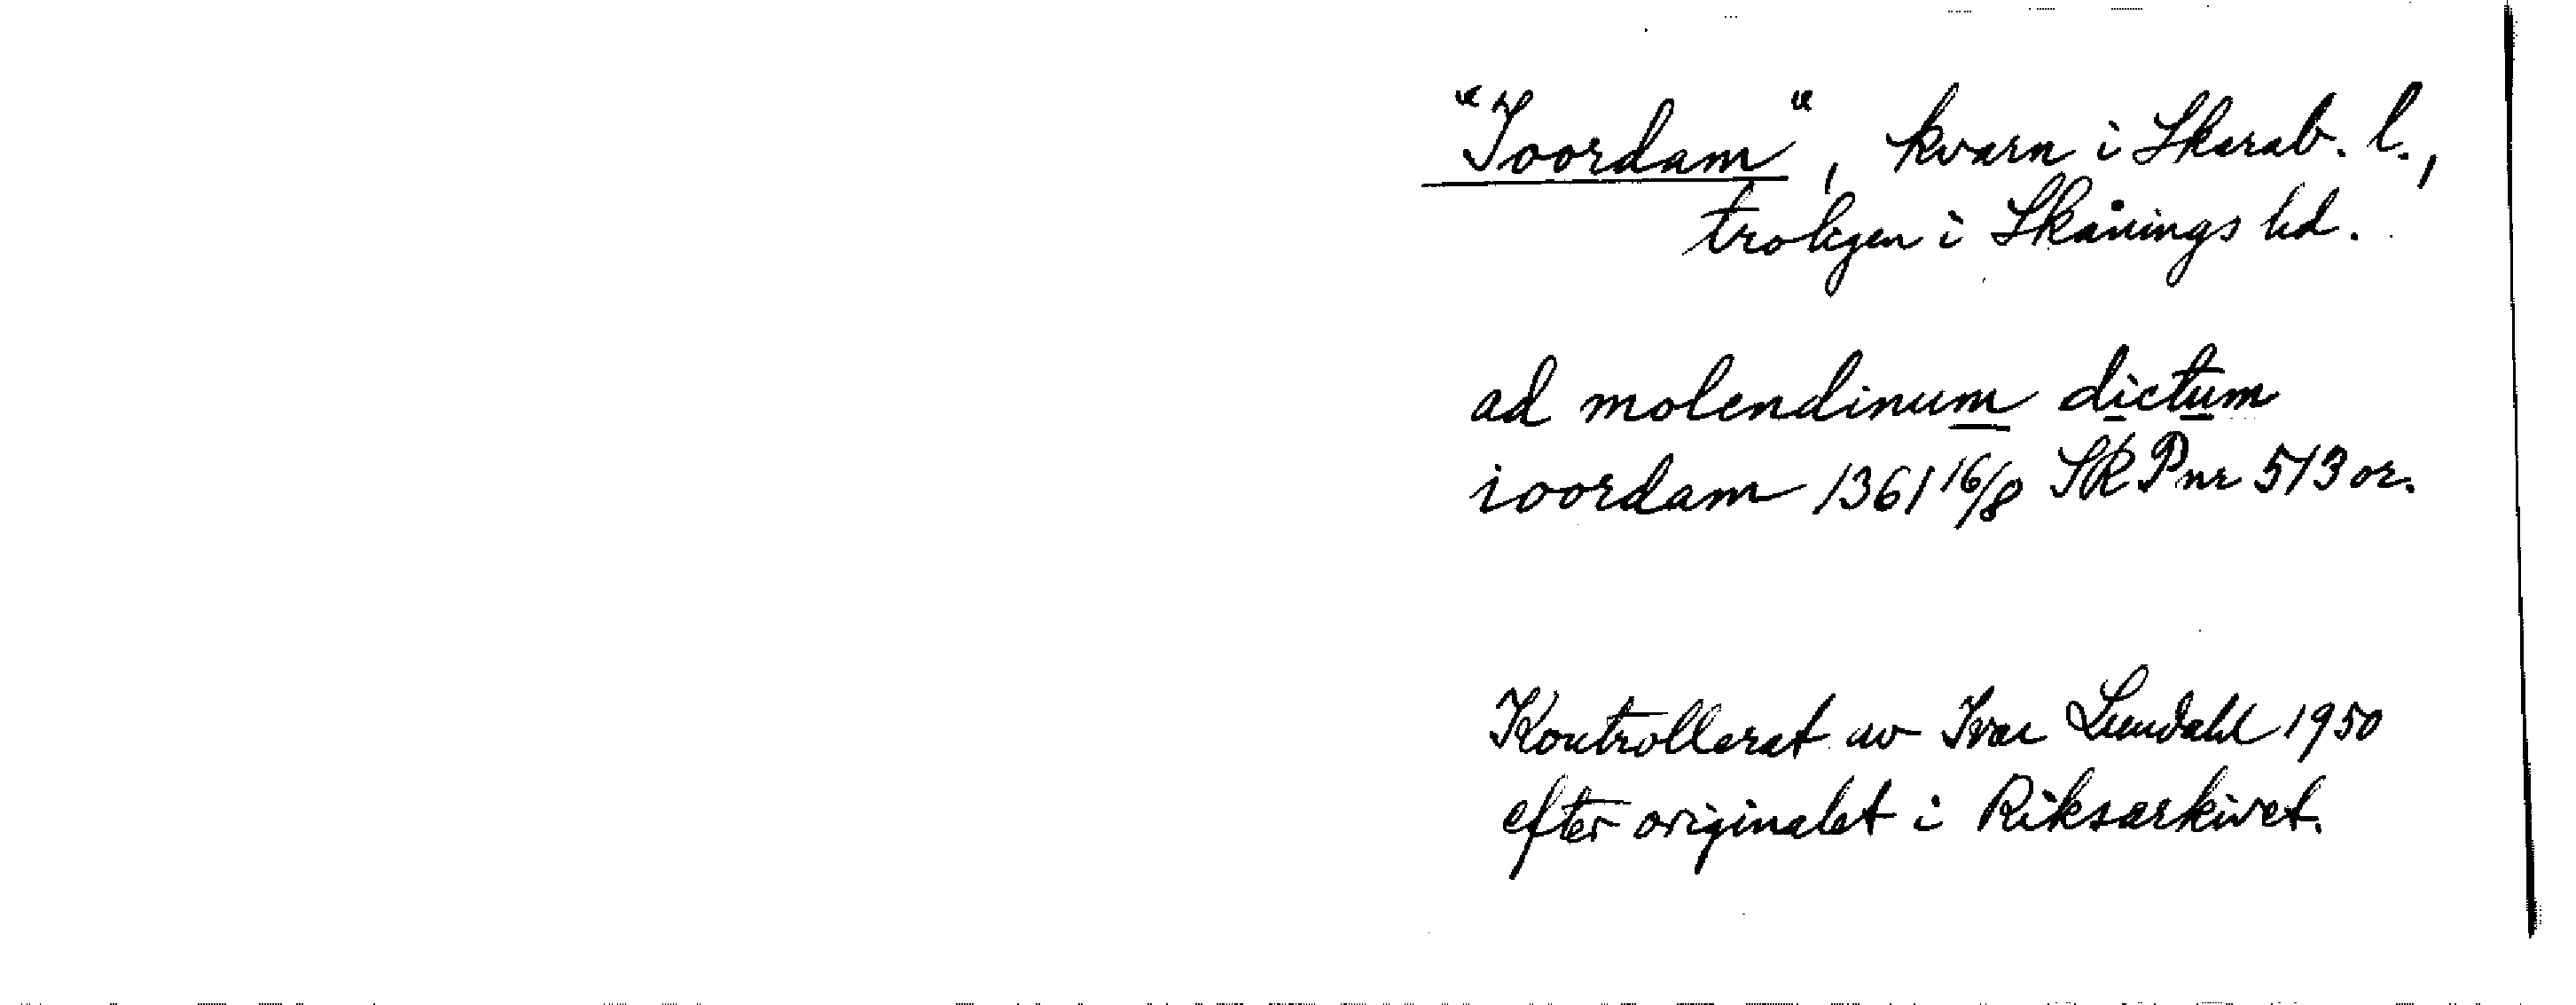 "Joordam", kvarn i Skarab. l.,
troligen i Skånings hd.
ad molendinum dictum
ioordam 1361 16/8 SRP nr 513 or.
Kontrollerat av Ivar Lundahl 1950
efter originalet i Riksarkivet.